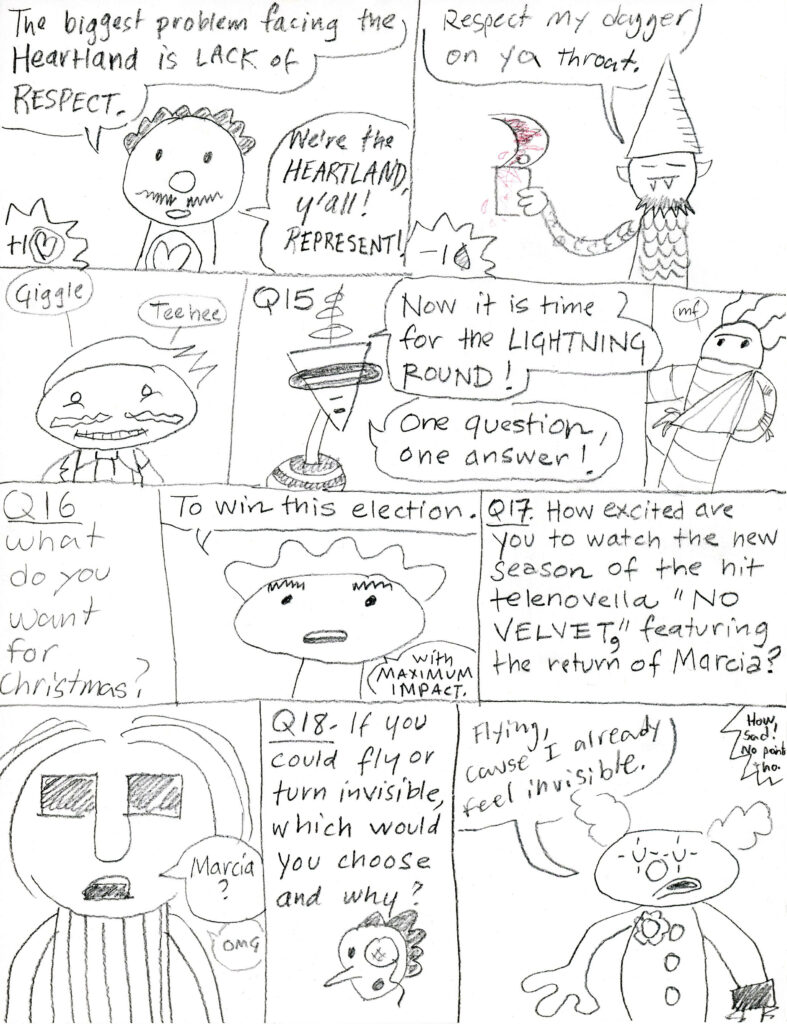 The biggest problem facing the
Heartland is LACK of
RESPECT.
We're the
HEARTLAND,
y'all!
REPRESENT!
+1
Respect my dagger
on ya throat.
-1
Giggle
Teehee
Q15
Now it is time
for the LIGHTNING
ROUND!
One question,
one answer!
mf
Q16
What
do you
want
for
Christmas?
To win this election.
with
MAXIMUM
IMPACT.
Q17. How excited are
you to watch the new
season of the hit
telenovella "NO
VELVET," featuring
the return of Marcia?
Marcia
?
OMG
Q18. If you
could fly or
turn invisible,
which would
you choose
and why?
Flying,
cause I already
feel invisible.
How
Sad!
No point
tho.